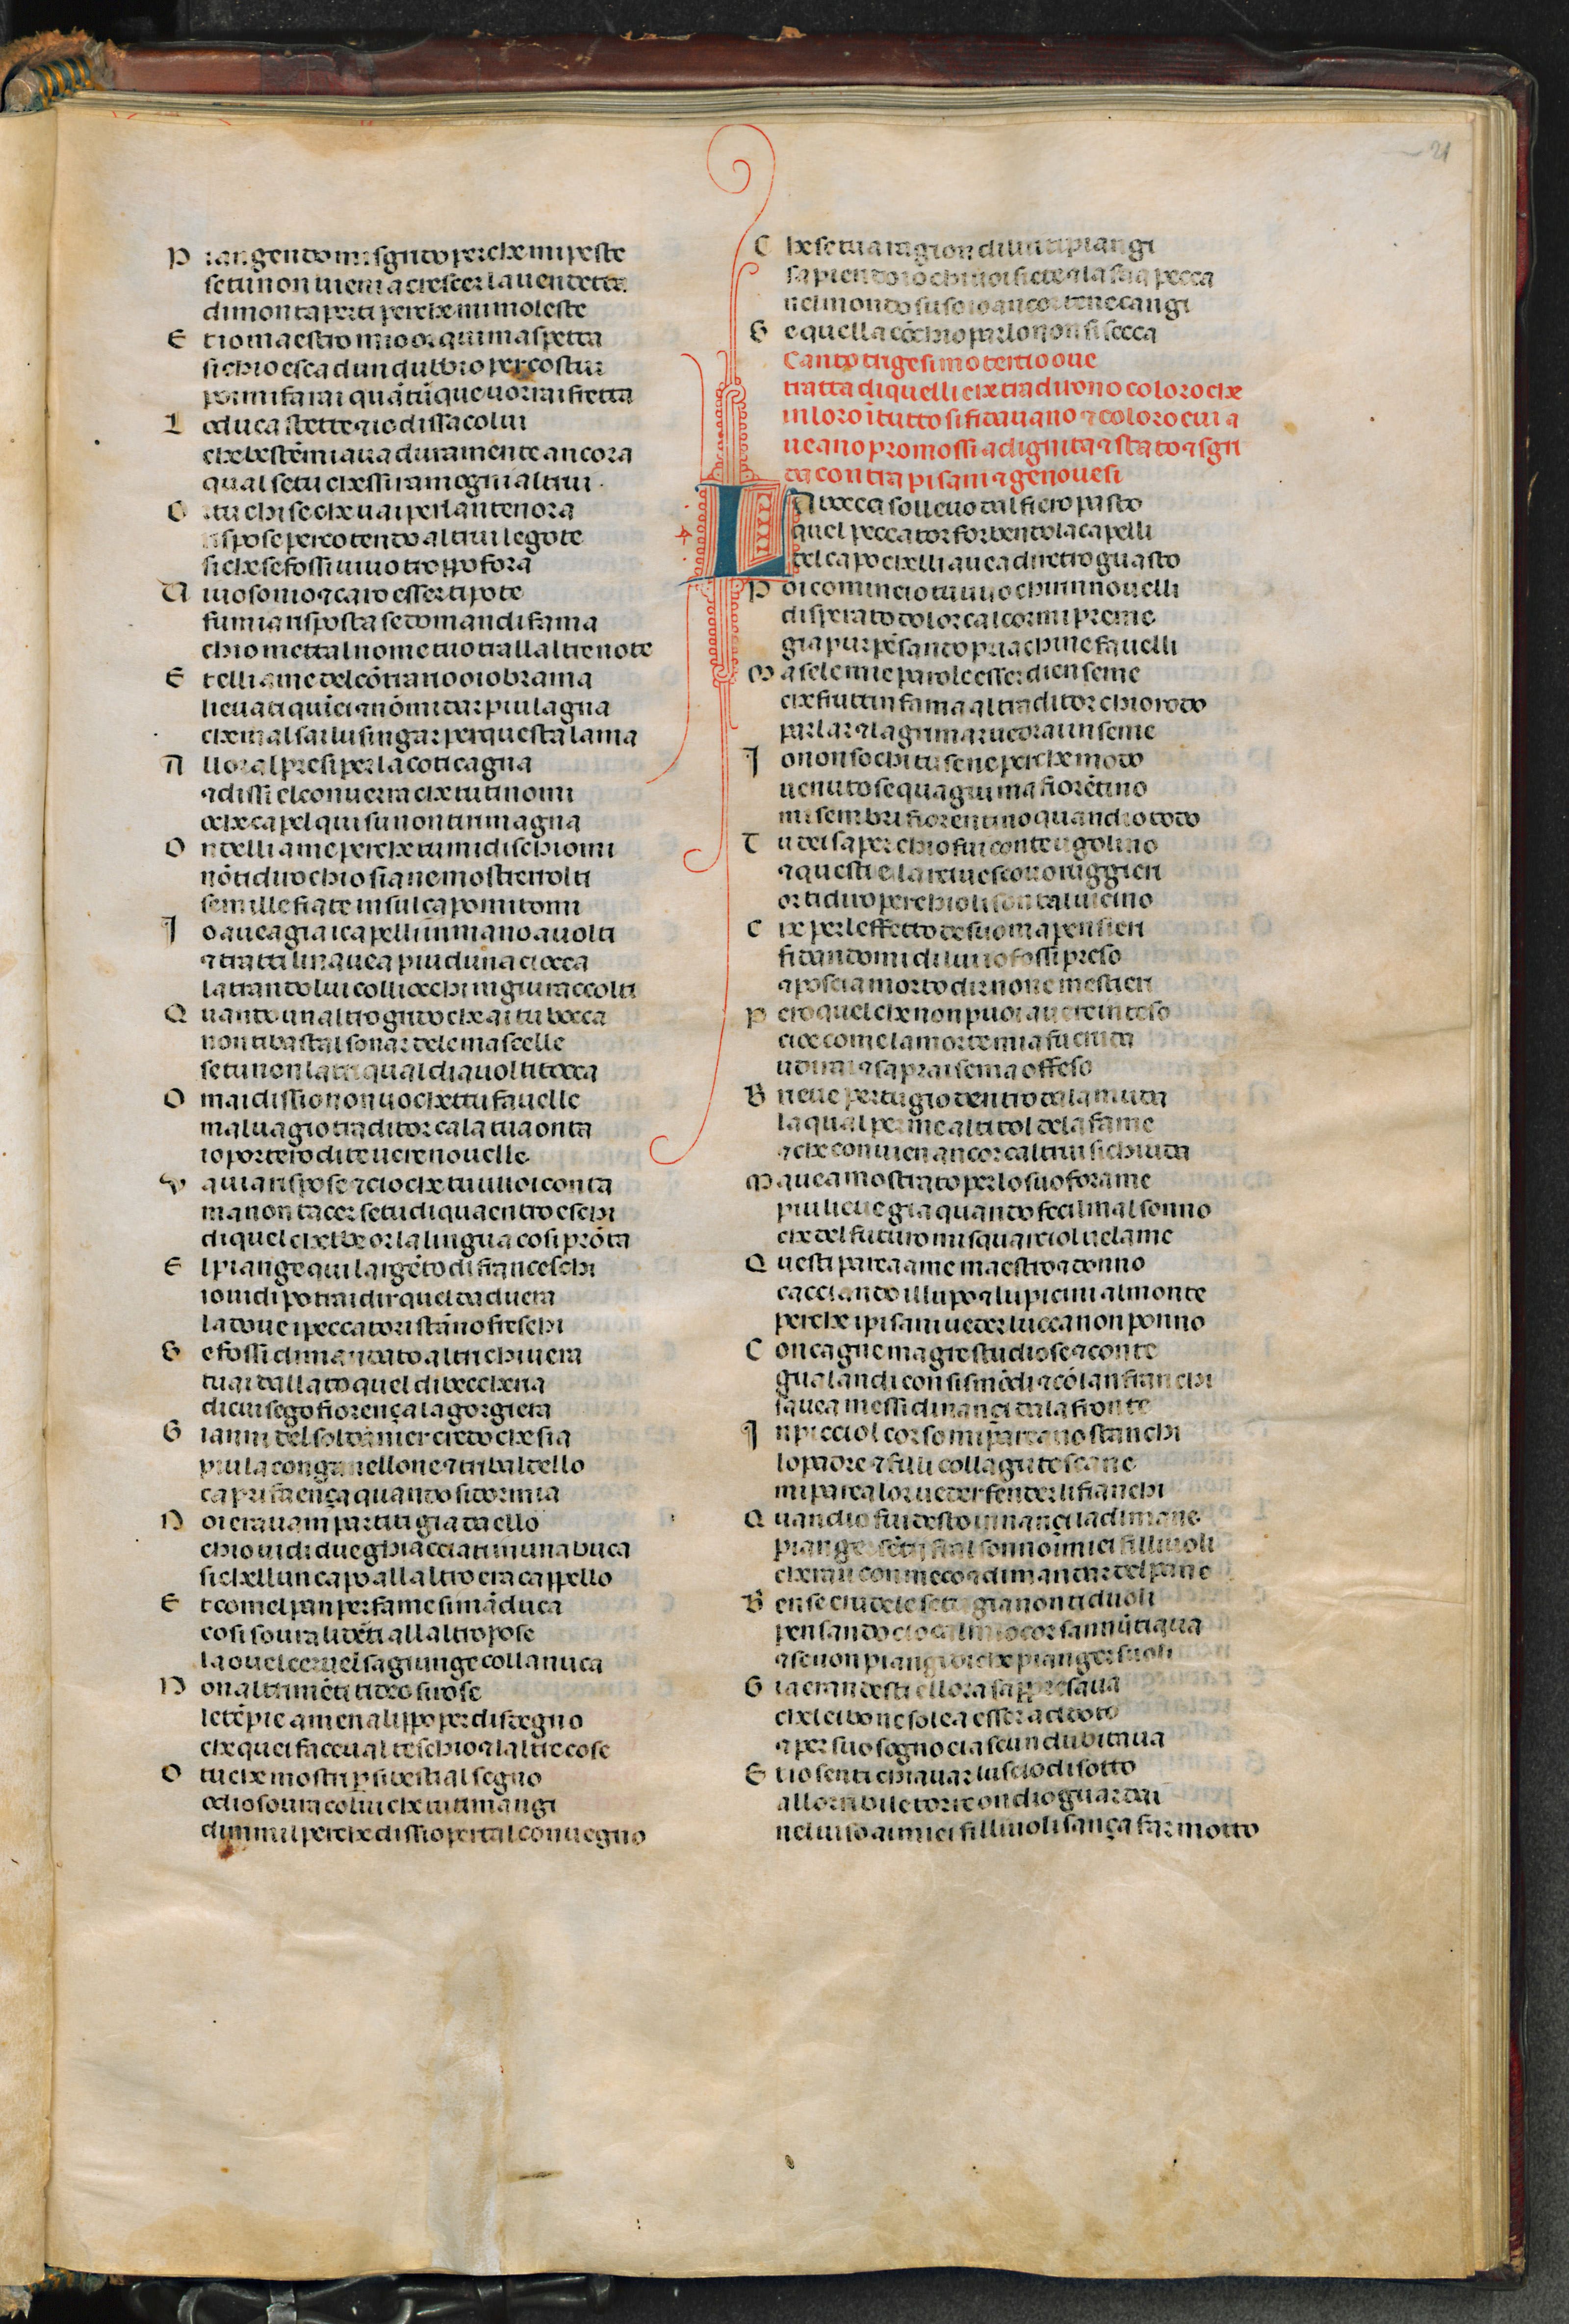 21
P iangendo mi sgrido perche mi peste
se tu non uieni a crescer la uendetta
di montaperti perche mi moleste
E t io maestro mio or qui maspetta
si chio esca dun dubbio per costui
poi mi farai quātūque uorrai fretta
L o duca stette ⁊ io dissi a colui
che bestēmiaua duramente ancora
qual se tu chessi rampogni altrui
O r tu chi se che uai per lantenora
rispose percotendo altrui le gote
si che se fossi uiuo troppo fora
U iuo sono io ⁊ caro esser ti pote
fu mia risposta se domandi fama
chio mettal nome tuo tra llaltre note
E t elli a me del cōtrario o io brama
lieuati quīci ⁊ nō mi dar piu lagna
che mal sai lusingar per questa lama
A llor al presi per la coticagna
⁊ dissi el conuerra che tu ti nomi
o che capel qui su non ti rimagna
O nd elli a me perche tu mi dischiomi
nō ti diro chio sia ne mosterrolti
se mille fiate in sul capo mi tomi
I o auea gia i capelli in mano auolti
⁊ tratti lin auea piu duna ciocca
latrando lui colli occhi in giu raccolti
Q uando un altro grido che ai tu bocca
non ti basta sonar dele mascelle
se tu non latri qual diauol ti tocca
O mai dissio non uo chettu fauelle
maluagio traditor cala tua onta
io portero di te uere nouelle
V a uia rispose ⁊ cio che tu uuoi conta
ma non tacer se tu di qua entro eschi
di quel chebbe or la lingua cosi prōta
E l piange qui largēto di franceschi
io uidi potrai dir quel da duera
la doue i peccatori stāno freschi
S e fossi dimandato altri chi uera
tu ai dallato quel di beccheria
di cui sego fiorença la gorgiera
G ianni del soldanier credo che sia
piu la con ganellone ⁊ tribaldello
capri faēnça quando si dormia
N oi erauam partiti gia da ello
chio uidi due ghiacciati in una buca
si chellun capo allaltro era cappello
E t comel pan per fame si māduca
cosi sourali dēti allaltro pose
la ouel ceruel sagiunge colla nuca
N on altrimēti tideo si rose
le tēpie a menalippo per disdegno
che quei faceual teschio ⁊ laltre cose
O tu che mostri p̱ si bestial segno
odio soura colui che tu ti mangi
dimmil perche dissio per tal conuegno
C he se tu a ragion di lui ti piangi
sapiendo io chi uoi siete ⁊ la sua pecca
nel mondo suso io ancor te ne cangi
S e quella cō chio parlo non si secca
Canto trigesimo tertio oue
tratta di quelli che tradirono coloro che
in loro ī tutto si fidauano ⁊ coloro cui a
ueano promossi a dignita ⁊ stato ⁊ sgri
da contra pisani ⁊ genouesi
LA bocca solleuo dal fiero pasto
quel peccator forbendola capelli
del capo chelli auea diretro guasto
P oi comincio tu uuo chi rinnouelli
disperato dolor cal cor mi preme
gia pur pēsando pria chi ne fauelli
M a se le mie parole esser dien seme
che frutti infamia al traditor chio rodo
parlar ⁊ lagrimar uedrai inseme
I o non so chi tu se ne perche modo
uenuto se qua giu ma fiorētino
mi sembri fiorentino quandio todo
T u dei saper chio fui conte ugolino
⁊ questi e larciuescouo ruggieri
or ti diro perchio li son tal uicino
C he per leffetto de suo ma pensieri
fidandomi di lui io fossi preso
⁊ poscia morto dir non e mestieri
P ero quel che non puoi auere inteso
cioe come la morte mia fu cruda
udirai ⁊ saprai se ma offeso
B rieue pertugio dentro dala muda
la qual per me al titol dela fame
⁊ che conuien ancor caltrui si chiuda
M auea mostrato per lo suo forame
piu lieue gia quando fecil mal sonno
che del futuro mi squarciol uelame
Q uesti parea a me maestro ⁊ donno
cacciando illupo ⁊ lupicini almonte
perche i pisani ueder lucca non ponno
C on cagne magre studiose ⁊ conte
gualandi con sismōdi ⁊ cō lanfranchi
sauea messi dinançi dala fronte
I n picciol corso mi pareano stanchi
lo padre ⁊ filli coll agute scane
mi parea lor ueder fender li fianchi
Q uandio fui desto innançi la dimane
pianger sēti fral sonno i miei filliuoli
cherā con meco ⁊ dimandar del pane
B en se crudele se tu gia non ti duoli
pensando cio cal mio cor sannūtiaua
⁊ se non piangi di che pianger suoli
G ia eran desti ellora sappressaua
chel cibo ne solea esser adotto
⁊ per suo sogno ciascun dubitaua
E t io senti chiauar luscio di sotto
allorribile torre ondio guardai
nel uiso aimiei filliuoli sança far motto